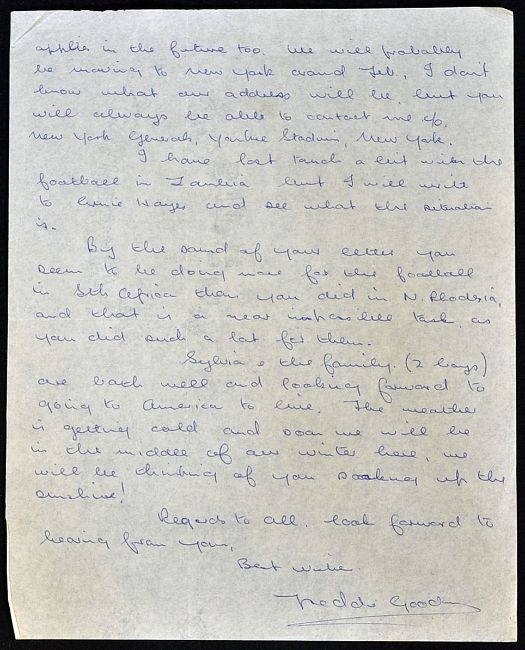 applies in the future too. We will probably
be moving to New York around Feb, I don't
know what our address will be, but you
will always be able to contact me c/o,
New York Generals, Yankee Stadium, New York.
I have lost touch a bit with the
football in Zambia but I will write
to Ernie Hayes and see what the situation
is.
By the sound of your letter you
seem to be doing more for the football
in Sth Africa than you did in N. Rhodesia,
and that is a near impossible task, as
you did such a lot for them.
Sylvia & the family. (2 boys)
are both well and looking forward to
going to America to live. The weather
is getting cold and soon we will be
in the middle of our winter here, we
will be thinking of you soaking up the
sunshine!
Regards to all, look forward to
hearing from you,
Best wishes
Freddie Goodwin